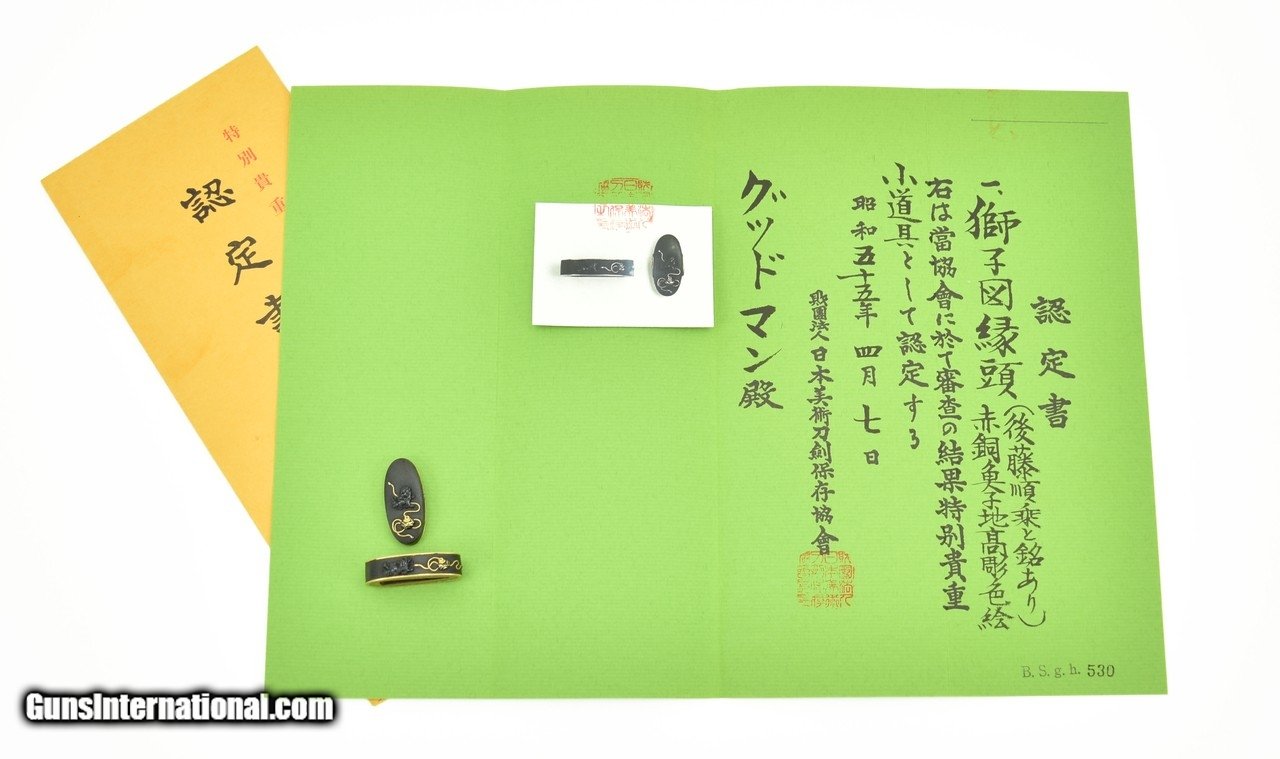 認定書
一、獅子図縁頭
（後藤順乗と銘あり）
赤銅魚子地高彫色絵
右は當協會に於て審査の結果特別貴重
小道具として認定する
昭和五十五年 四月 七日
財團法人 日本美術刀劍保存協會
グッドマン殿
B. S. g. h. 530
特別貴重
認定書
GunsInternational.com